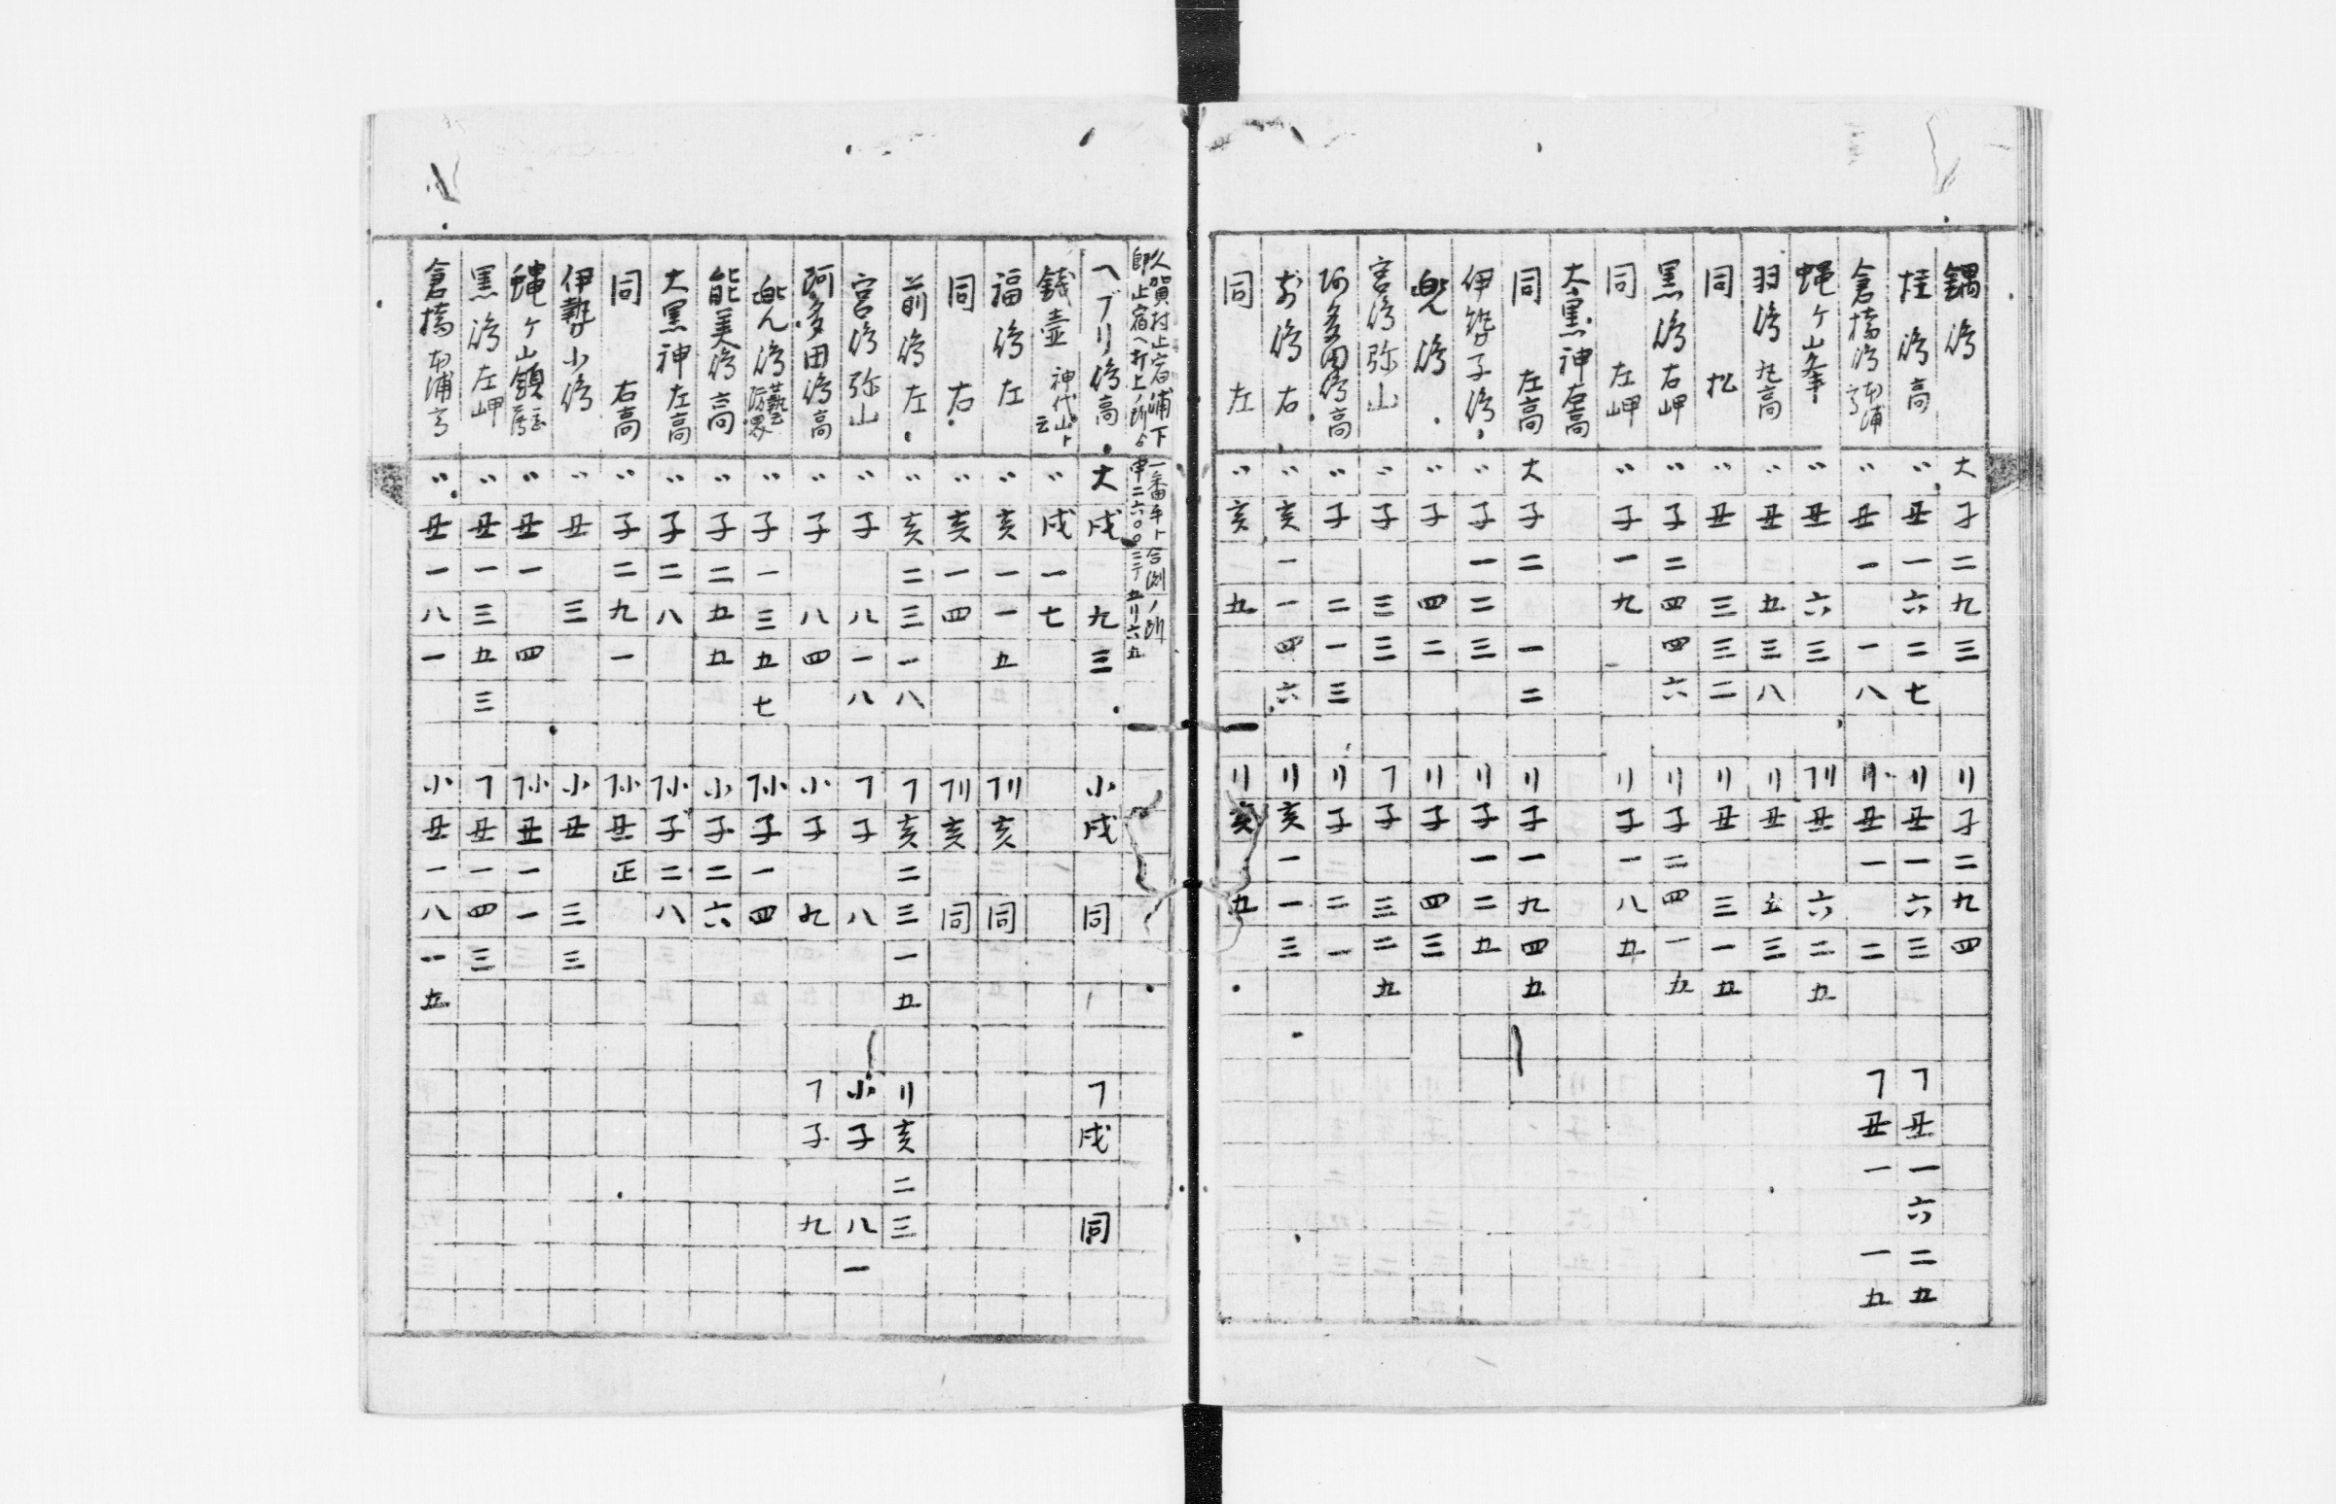 鍋島 大子二九三 リ子二九四
桂島高 〃丑一六二七 リ丑一六三 フ丑一六二五
倉橋島本浦高 〃丑一 一八 小丑一 二 フ丑一 一五
蝿ケ山峯 〃丑 六三 フリ丑 六二五
羽島丸高 〃丑 五三八 リ丑 五三
同 松 〃丑 三三二 リ丑 三一五
黒島右岬 〃子二四四六 リ子二四一五
同 左岬 〃子一九 リ子一八五
大黒神右高
同 左高 大子二 一二 リ子一九四五
伊勢子島 〃子一二三 リ子一二五
兜島 〃子 四二 リ子 四三
宮島弥山 〃子 三三 フ子 三二五
阿多田島高 〃子 二一三 リ子 二一
前島右 〃亥一一四六 リ亥一一三
同 左 〃亥 五 リ亥 五
久賀村止宿浦下 一番年ト合測ノ所
即止宿ヘ打上ノ所ヨ 申二六〇〇三丁五リ六五
ヘブリ島高 大戌 九三 小戌 同 フ戌 同
錢壷 神代山ト云 〃戌一七
福島左 〃亥一一五 フリ亥 同
同 右 〃亥一四 フリ亥 同
前島左 〃亥二三一八 フ亥二三一五 リ亥二三
宮島弥山 〃子 八一八 フ子 八 小子 八一
阿多田島高 〃子 八四 小子 九 フ子 九
兜島 〃子一三五七 フ小子一四
能美島高 〃子二五五 小子二六
大黒神左高 〃子二八 フ小子二八
同 右高 〃子二九一 フ小丑正
伊勢小島 〃丑 三 小丑 三三
蝿ケ山領 〃丑一 四 フ小丑一一
黒島左岬 〃丑一三五三 フ丑一四三
倉橋本浦高 〃丑一八一 小丑一八一五